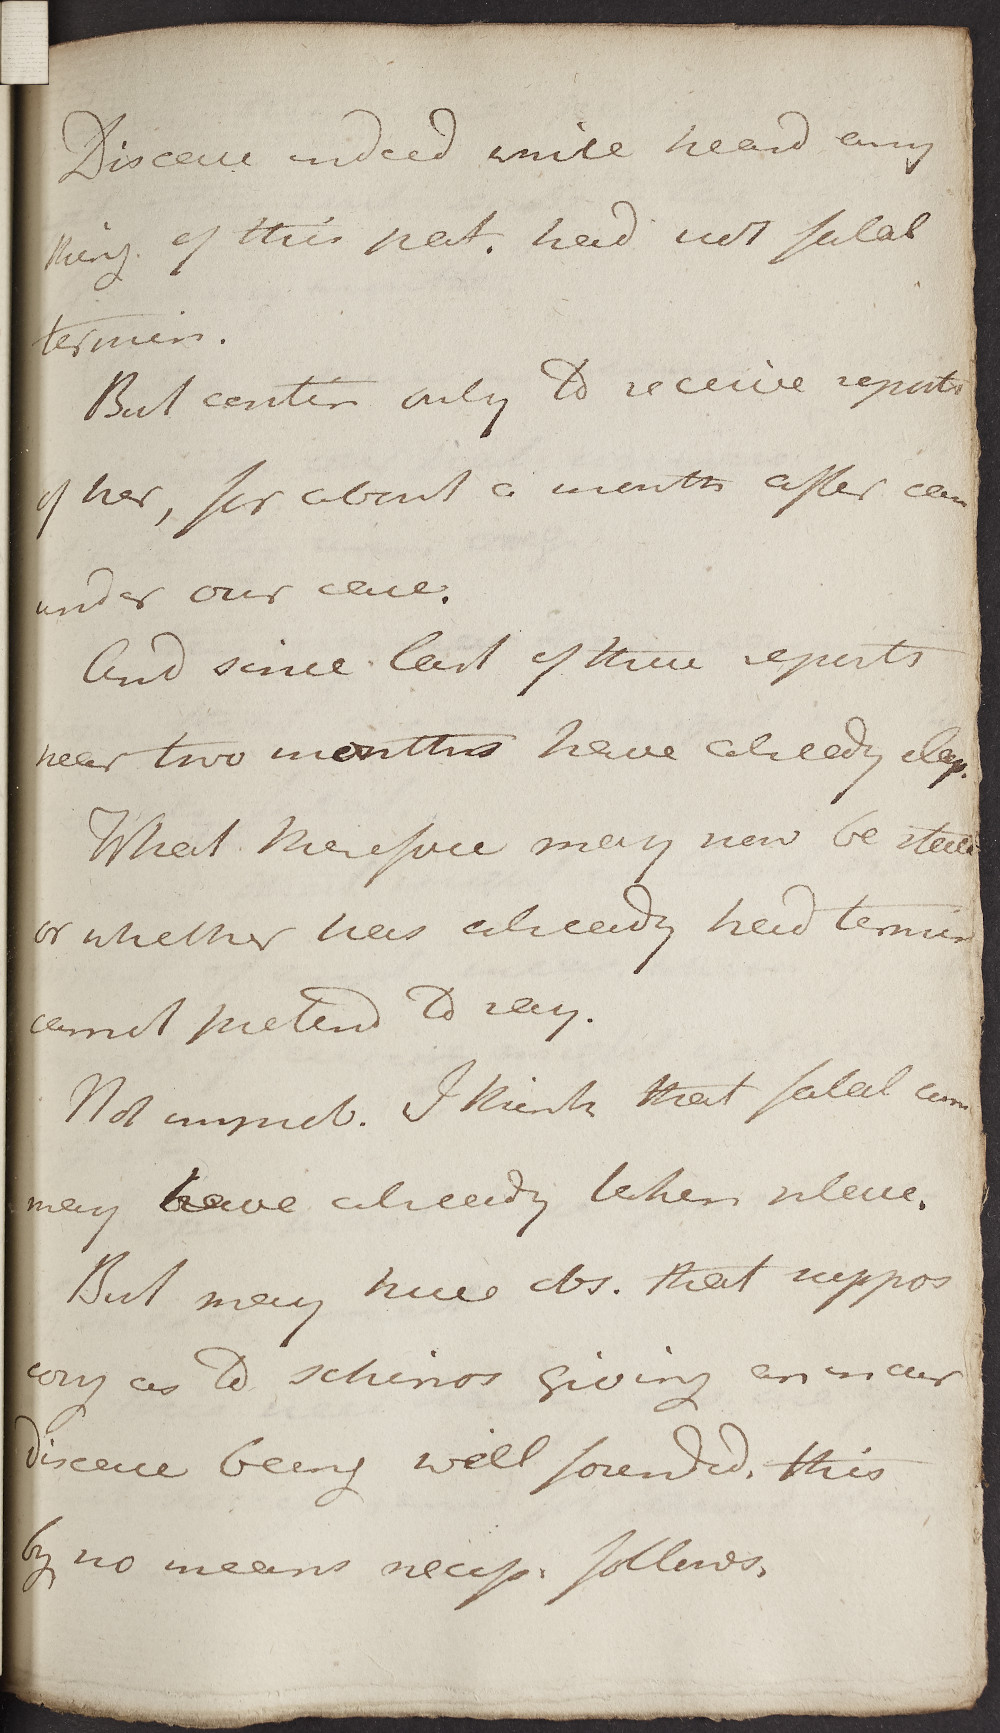 Disease indeed while heard any
thing of this pat. had not fatal
termin.
But contin only to receive reports
of her, for about a month after cam
under our care.
And since last of these reports
near two months have already elap.
What therefore may now be state
or whether has already had termin
cannot pretend to say.
Not improb. I think that fatal
may have already taken place.
But may here obs. that suppos
cory as to schirros giving an incur
disease being well founded. this
by no means necess. follows.